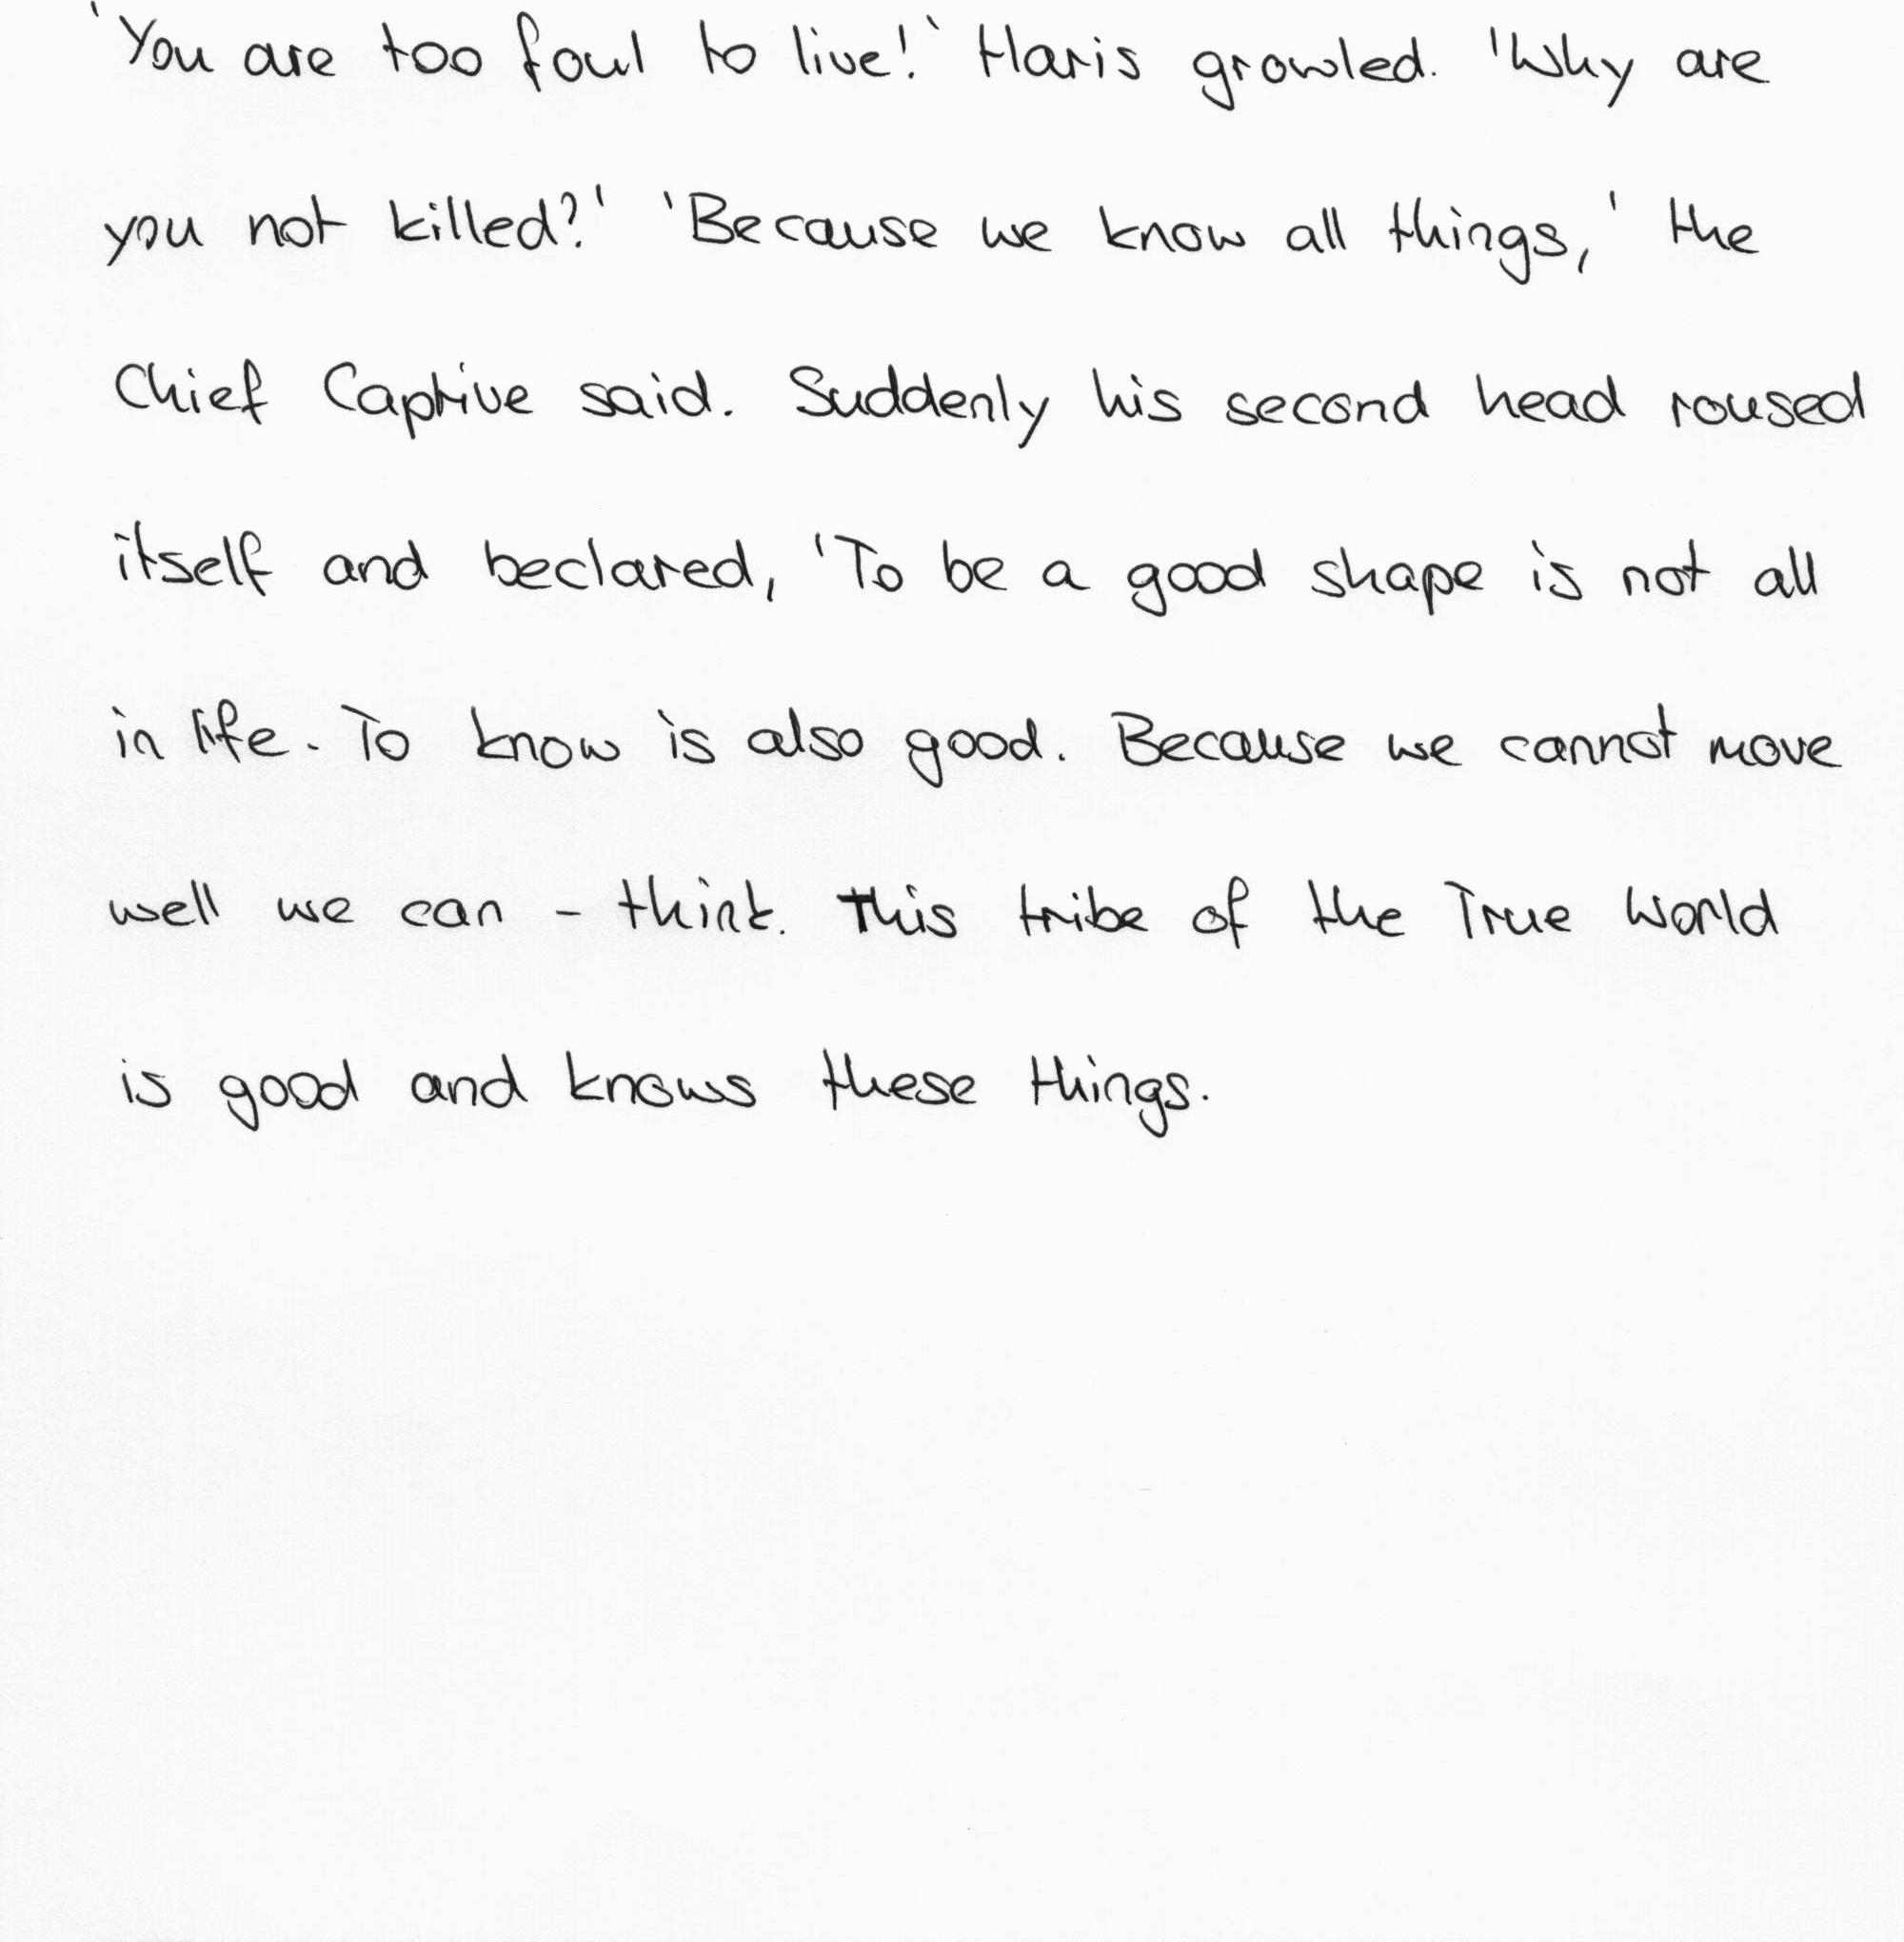 'You are too foul to live!' Haris growled. 'Why are
you not killed?' 'Because we know all things,' the
Chief Captive said. Suddenly his second head roused
itself and beclared, 'To be a good shape is not all
in life. To know is also good. Because we cannot move
well we can - think. This tribe of the True World
is good and knows these things.